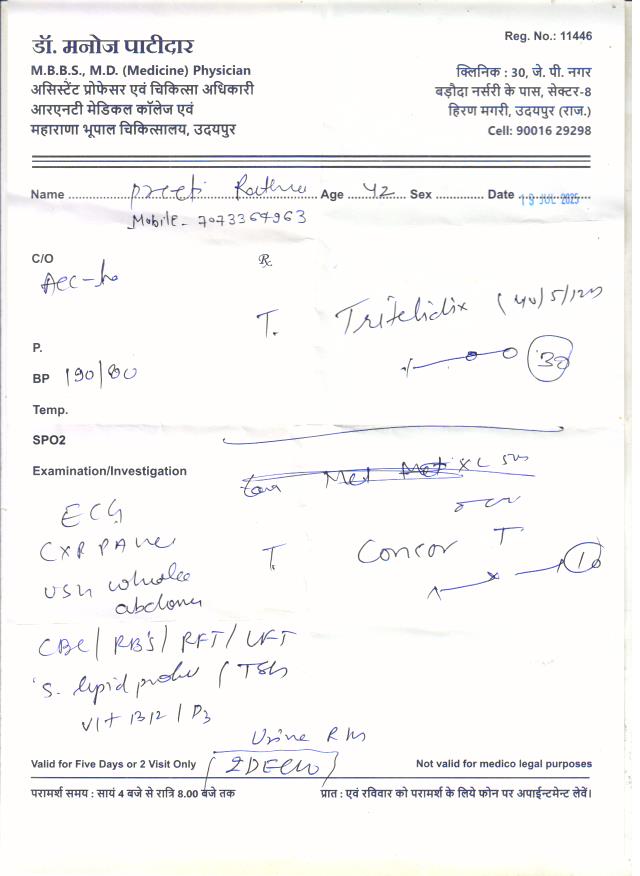 डॉ. मनोज पाटीदार
Reg. No.: 11446
M.B.B.S., M.D. (Medicine) Physician
असिस्टेंट प्रोफेसर एवं चिकित्सा अधिकारी
आरएनटी मेडिकल कॉलेज एवं
महाराणा भूपाल चिकित्सालय, उदयपुर
क्लिनिक : 30, जे. पी. नगर
बड़ौदा नर्सरी के पास, सेक्टर-8
हिरण मगरी, उदयपुर (राज.)
Cell: 90016 29298
Name Preeti Age 42 Sex Date JUL 2025
Mobile - 7073364963
C/O
Rx
T.
P.
30
BP 190/80
Temp.
SPO2
Examination/Investigation
Met Met XL
ECG
CXR PA
T. Concor T
10
USG whole
abdomen
CBC / RBS / RFT / LFT
S. lipid profile / TSH
Vit B12 / D3
Urine R/M
2D ECHO
Valid for Five Days or 2 Visit Only
Not valid for medico legal purposes
परामर्श समय : सायं 4 बजे से रात्रि 8.00 बजे तक
प्रात : एवं रविवार को परामर्श के लिये फोन पर अपाईन्टमेन्ट लेवें।